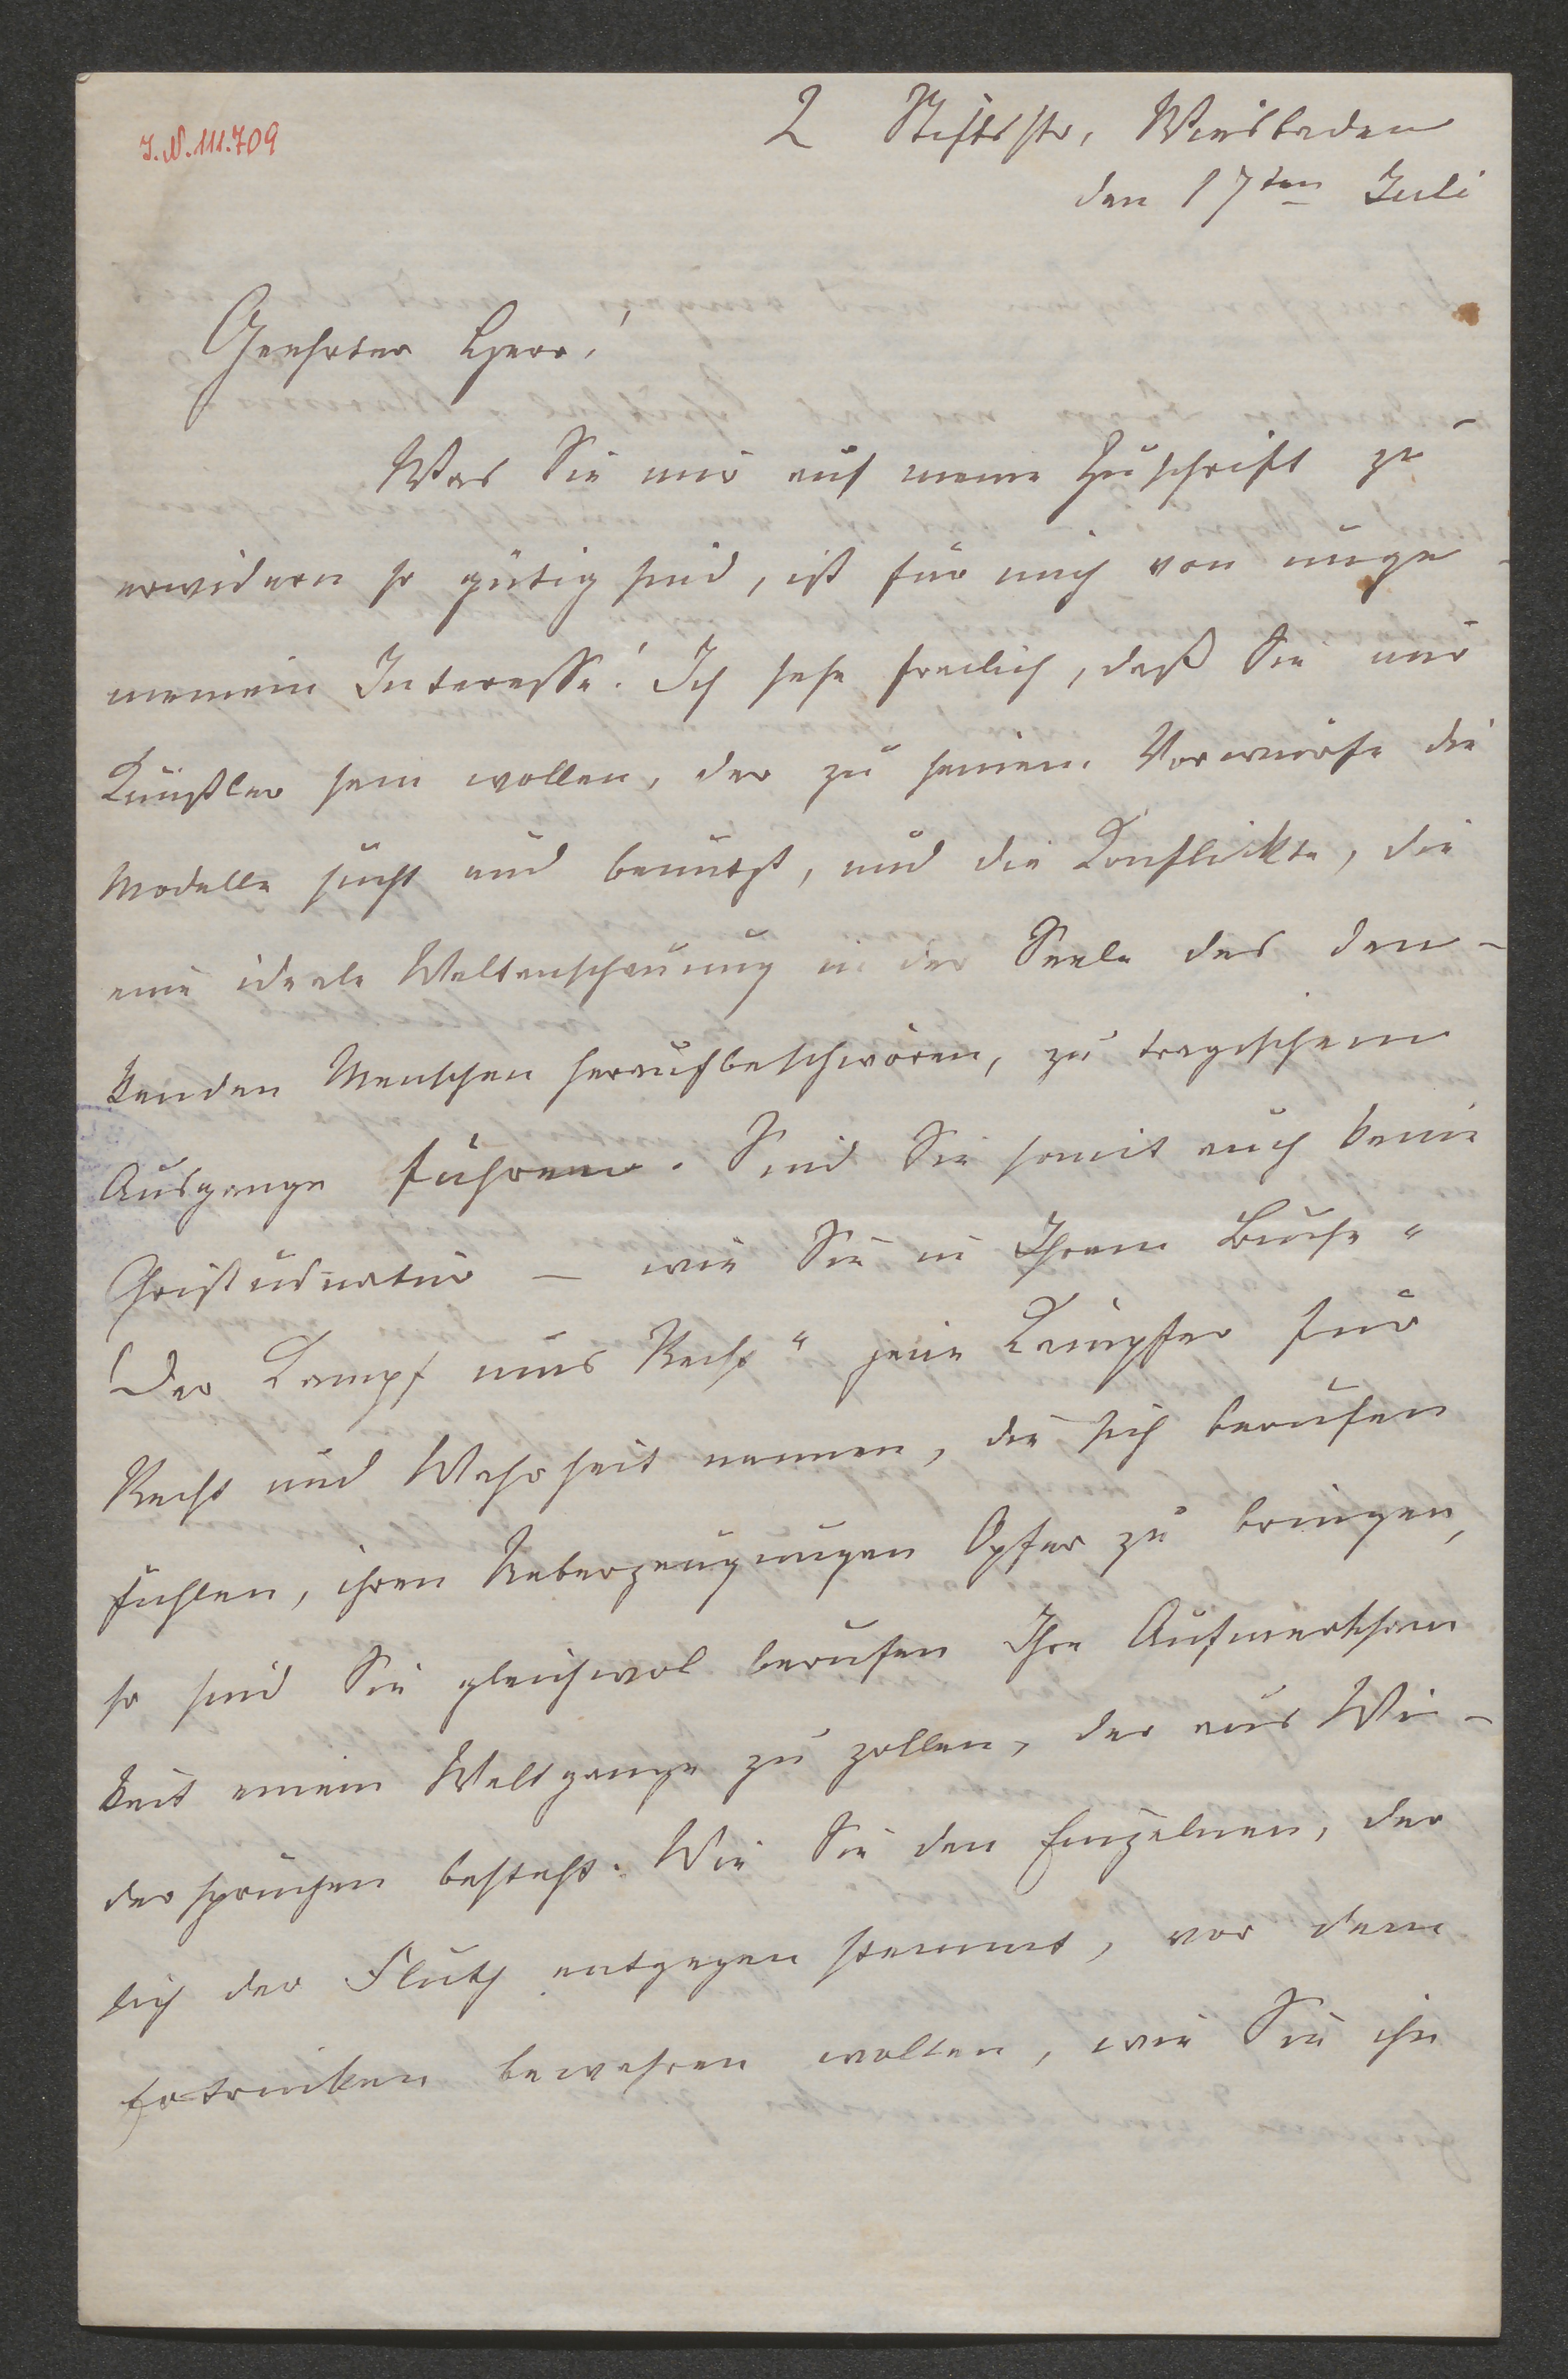 J.N.111.709
2 Stiftstr, Wiesbaden
den 17ten Juli
Geehrter Herr!
Was Sie mir auf meine Zuschrift zu
erwidern so gütig sind, ist für mich von unge-
meinem Interesse! Ich sehe freilich, daß Sie nur
Künstler sein wollen, der zu seinem Vorwurfe die
Modelle sucht und benutzt, und die Konflickte, die
eine ideale Weltanschauung in der Seele des den-
kenden Menschen heraufbeschwören, zu tragischem
Ausgange führen. Sind Sie somit auch keine
Christusnatur – wie Sie in Ihrem Buche "
Der Kampf ums Recht" jene Kämpfer für
Recht und Wahrheit nennen, die sich berufen
fühlen, ihren Ueberzeugungen Opfer zu bringen,
so sind Sie gleichwol berufen Ihre Aufmerksam
keit einem Weltgange zu zollen, der aus Wi-
dersprüchen besteht. Wie Sie den Einzelnen, der
sich der Fluth entgegen stemmt, vor dem
Ertrinken bewahren wollen, wie Sie ihn